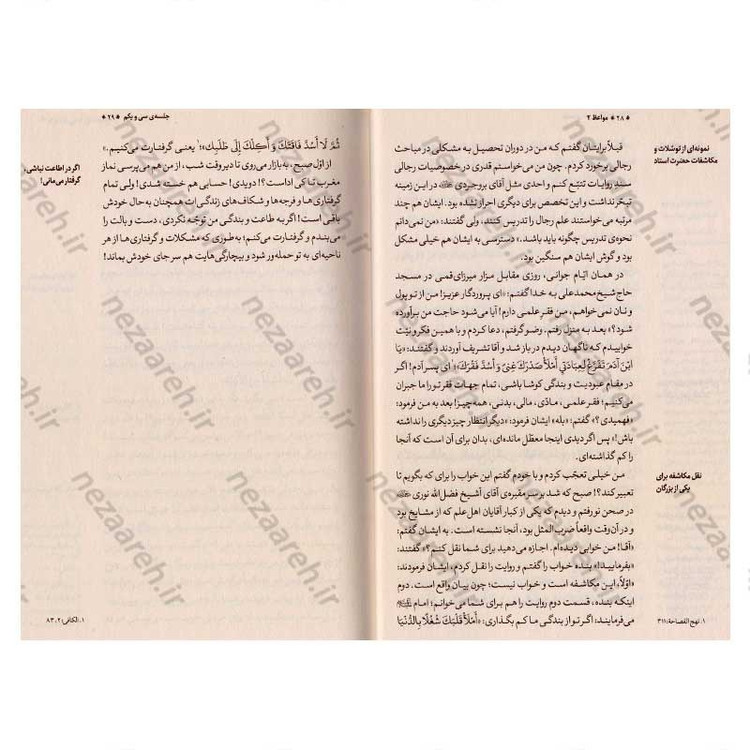 * ۲۸ * مواعظ ۲
نمونه‌ای از توسّلات و
مکاشفات حضرت استاد
قبلاً برایشان گفتم که من در دوران تحصیل به مشکلی در مباحث
رجالی برخورد کردم. چون من می‌خواستم قدری در خصوصیات رجالی
سندِ روایات تتبّع کنم و احدی مثل آقای بروجردی در این زمینه
تبحّر نداشت و این تخصص برای دیگری احراز نشده بود. ایشان هم چند
مرتبه می‌خواستند علم رجال را تدریس کنند، ولی گفتند: «من نمی‌دانم
نحوه‌ی تدریس چگونه باید باشد.» دسترسی به ایشان هم خیلی مشکل
بود و گوش ایشان هم سنگین بود.
در همان ایّام جوانی، روزی مقابل مزار میرزای قمی در مسجد
حاج شیخ محمدعلی به خدا گفتم: «ای پروردگار عزیز! من از تو پول
و نان نمی‌خواهم، من فقر علمی دارم! آیا می‌شود حاجت من برآورده
شود؟» بعد به منزل رفتم. وضو گرفتم، دعا کردم و با همین فکر و نیّت
خوابیدم که ناگهان دیدم در باز شد و آقا تشریف آوردند و گفتند: «یَا
ابْنَ آدَمَ تَفَرَّغْ لِعِبَادَتِي أَمْلَأْ صَدْرَكَ غِنًى وَ أَسُدَّ فَقْرَكَ»؛ ۱ ای پسر آدم! اگر
در مقام عبودیت و بندگی کوشا باشی، تمام جهات فقر تو را ما جبران
می‌کنیم؛ فقر علمی، مادّی، مالی، بدنی، همه‌چیز! بعد به من فرمود:
«فهمیدی؟» گفتم: «بله» ایشان فرمود: «دیگر انتظار چیز دیگری را نداشته
باش!» پس اگر دیدی اینجا معطل مانده‌ای، بدان برای آن است که آنجا
را کم گذاشته‌ای.
نقل مکاشفه برای
یکی از بزرگان
من خیلی تعجّب کردم و با خودم گفتم این خواب را برای که بگویم تا
تعبیر کند؟! صبح که شد بر سر مقبره‌ی آقای آشیخ فضل‌الله نوری
در صحن نو رفتم و دیدم که یکی از کبار آقایان اهل علم که از مشایخ بود
و در آن وقت واقعاً ضرب المثل بود، آنجا نشسته است. به ایشان گفتم:
«آقا! من خوابی دیده‌ام. اجازه می‌دهید برای شما نقل کنم؟» گفتند:
«بفرمایید!» بنده خواب را گفتم و روایت را نقل کردم. ایشان فرمودند:
«اوّلاً، این مکاشفه است و خواب نیست؛ چون بیان واقع است. دوم
اینکه بنده، قسمت دوم روایت را هم برای شما می‌خوانم؛ امام
می‌فرمایند: اگر تو از بندگی ما کم بگذاری: «أَمْلَأْ قَلْبَكَ شُغْلًا بِالدُّنْيَا
۱. نهج الفصاحة: ۳۱۱
جلسه‌ی سی و یکم * ۲۹ *
ثُمَّ لَا أَسُدَّ فَاقَتَكَ وَ أَكِلْكَ إِلَى طَلَبِكَ»؛ ۱ یعنی گرفتارت می‌کنیم.
اگر در اطاعت نباشی،
گرفتار می‌مانی!
از اوّل صبح، به بازار می‌روی تا دیروقت شب، از من هم می‌پرسی نماز
مغرب تا کی اداست؟! دویدی! حسابی هم خسته شدی! ولی تمام
گرفتاری‌ها و فرجه‌ها و شکاف‌های زندگی‌ات همچنان به حال خودش
باقی است! اگر به طاعت و بندگی من توجّه نکردی، دست و بالت را
می‌بندم و گرفتارت می‌کنم؛ به‌طوری که مشکلات و گرفتاری‌ها از هر
ناحیه‌ای به تو حمله‌ور شود و بیچارگی‌هایت هم سر جای خودش بماند!
۱. الکافی؛ ۲: ۸۳
nezaareh.ir